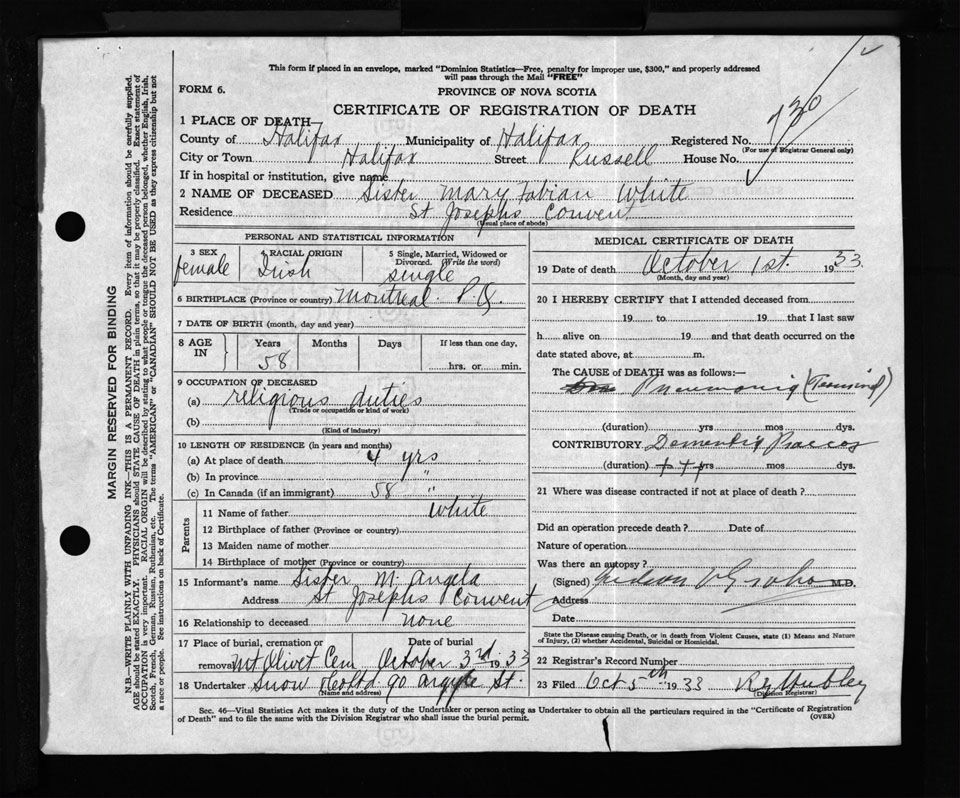 This form if placed in an envelope, marked "Dominion Statistics—Free, penalty for improper use, $300," and properly addressed
will pass through the Mail "FREE"
FORM 6.
PROVINCE OF NOVA SCOTIA
CERTIFICATE OF REGISTRATION OF DEATH
1 PLACE OF DEATH
County of Halifax Municipality of Halifax Registered No. 730
(For use of Registrar General only)
City or Town Halifax Street Russell House No.
If in hospital or institution, give name
2 NAME OF DECEASED Sister Mary Fabian White
Residence St Josephs Convent
(Usual place of abode)
PERSONAL AND STATISTICAL INFORMATION
3 SEX female
4 RACIAL ORIGIN Irish
5 Single, Married, Widowed or Divorced. (Write the word) single
6 BIRTHPLACE (Province or country) Montreal P.Q.
7 DATE OF BIRTH (month, day and year)
8 AGE IN Years Months Days If less than one day,
58 hrs. or min.
9 OCCUPATION OF DECEASED
(a) religious duties
(Trade or occupation or kind of work)
(b)
(Kind of industry)
10 LENGTH OF RESIDENCE (in years and months)
(a) At place of death 4 yrs
(b) In province "
(c) In Canada (if an immigrant) 58 "
Parents
11 Name of father White
12 Birthplace of father (Province or country)
13 Maiden name of mother
14 Birthplace of mother (Province or country)
15 Informant's name Sister M. Angela
Address St Josephs Convent
16 Relationship to deceased none
17 Place of burial, cremation or removal Mt Olivet Cem Date of burial October 3rd 1933
18 Undertaker Snow & Co Ltd 90 Argyle St.
(Name and address)
MEDICAL CERTIFICATE OF DEATH
19 Date of death October 1st. 1933.
(Month, day and year)
20 I HEREBY CERTIFY that I attended deceased from
19 to 19 that I last saw
h alive on 19 and that death occurred on the
date stated above, at m.
The CAUSE of DEATH was as follows:—
Pneumonia (Terminal)
(duration) yrs mos dys.
CONTRIBUTORY Dementia Praecox
(duration) yrs mos dys.
21 Where was disease contracted if not at place of death?
Did an operation precede death? Date of
Nature of operation
Was there an autopsy?
(Signed) Judson V Graham M.D.
Address
Date
State the Disease causing Death, or in death from Violent Causes, state (1) Means and Nature
of Injury, (2) whether Accidental, Suicidal or Homicidal.
22 Registrar's Record Number
23 Filed Oct 5th 1933
(Division Registrar)
Sec. 46—Vital Statistics Act makes it the duty of the Undertaker or person acting as Undertaker to obtain all the particulars required in the "Certificate of Registration
of Death" and to file the same with the Division Registrar who shall issue the burial permit.
(OVER)
MARGIN RESERVED FOR BINDING
N.B.—WRITE PLAINLY WITH UNFADING INK—THIS IS A PERMANENT RECORD. Every item of information should be carefully supplied.
AGE should be stated EXACTLY. PHYSICIANS should STATE CAUSE OF DEATH in plain terms, so that it may be properly classified. Exact statement of
OCCUPATION is very important. RACIAL ORIGIN will be described by stating to what people or tongue the deceased person belonged, whether English, Irish,
Scotch, French, German, Russian, Ruthenian, etc. The terms "AMERICAN" or "CANADIAN" SHOULD NOT BE USED as they express citizenship but not
a race or people. See instructions on back of Certificate.